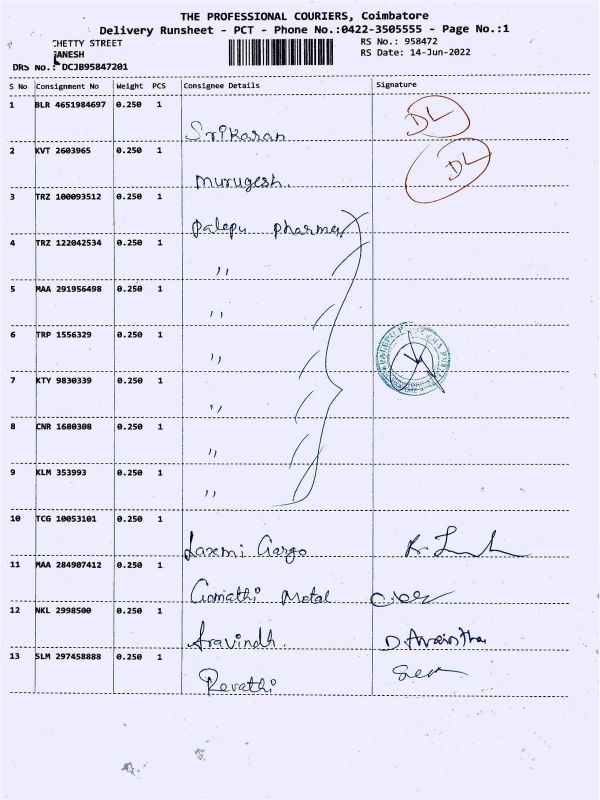 THE PROFESSIONAL COURIERS, Coimbatore
Delivery Runsheet - PCT - Phone No.:0422-3505555 - Page No.:1
CHETTY STREET
GANESH
RS No.: 958472
RS Date: 14-Jun-2022
DRS No.: DCJB95847201
S No Consignment No Weight PCS Consignee Details Signature
1 BLR 4651984697 0.250 1
Srikaran DL
2 KVT 2603965 0.250 1
Murugesh. DL
3 TRZ 100093512 0.250 1
Palepu pharma
4 TRZ 122042534 0.250 1
,,
5 MAA 291956498 0.250 1
,,
6 TRP 1556329 0.250 1
,,
7 KTY 9830339 0.250 1
,,
8 CNR 1680308 0.250 1
,,
9 KLM 353993 0.250 1
,,
10 TCG 10053101 0.250 1
Laxmi Cargo
11 MAA 284907412 0.250 1
Gomathi Metal
12 NKL 2998500 0.250 1
Aravindh.
13 SLM 297458888 0.250 1
Revathi